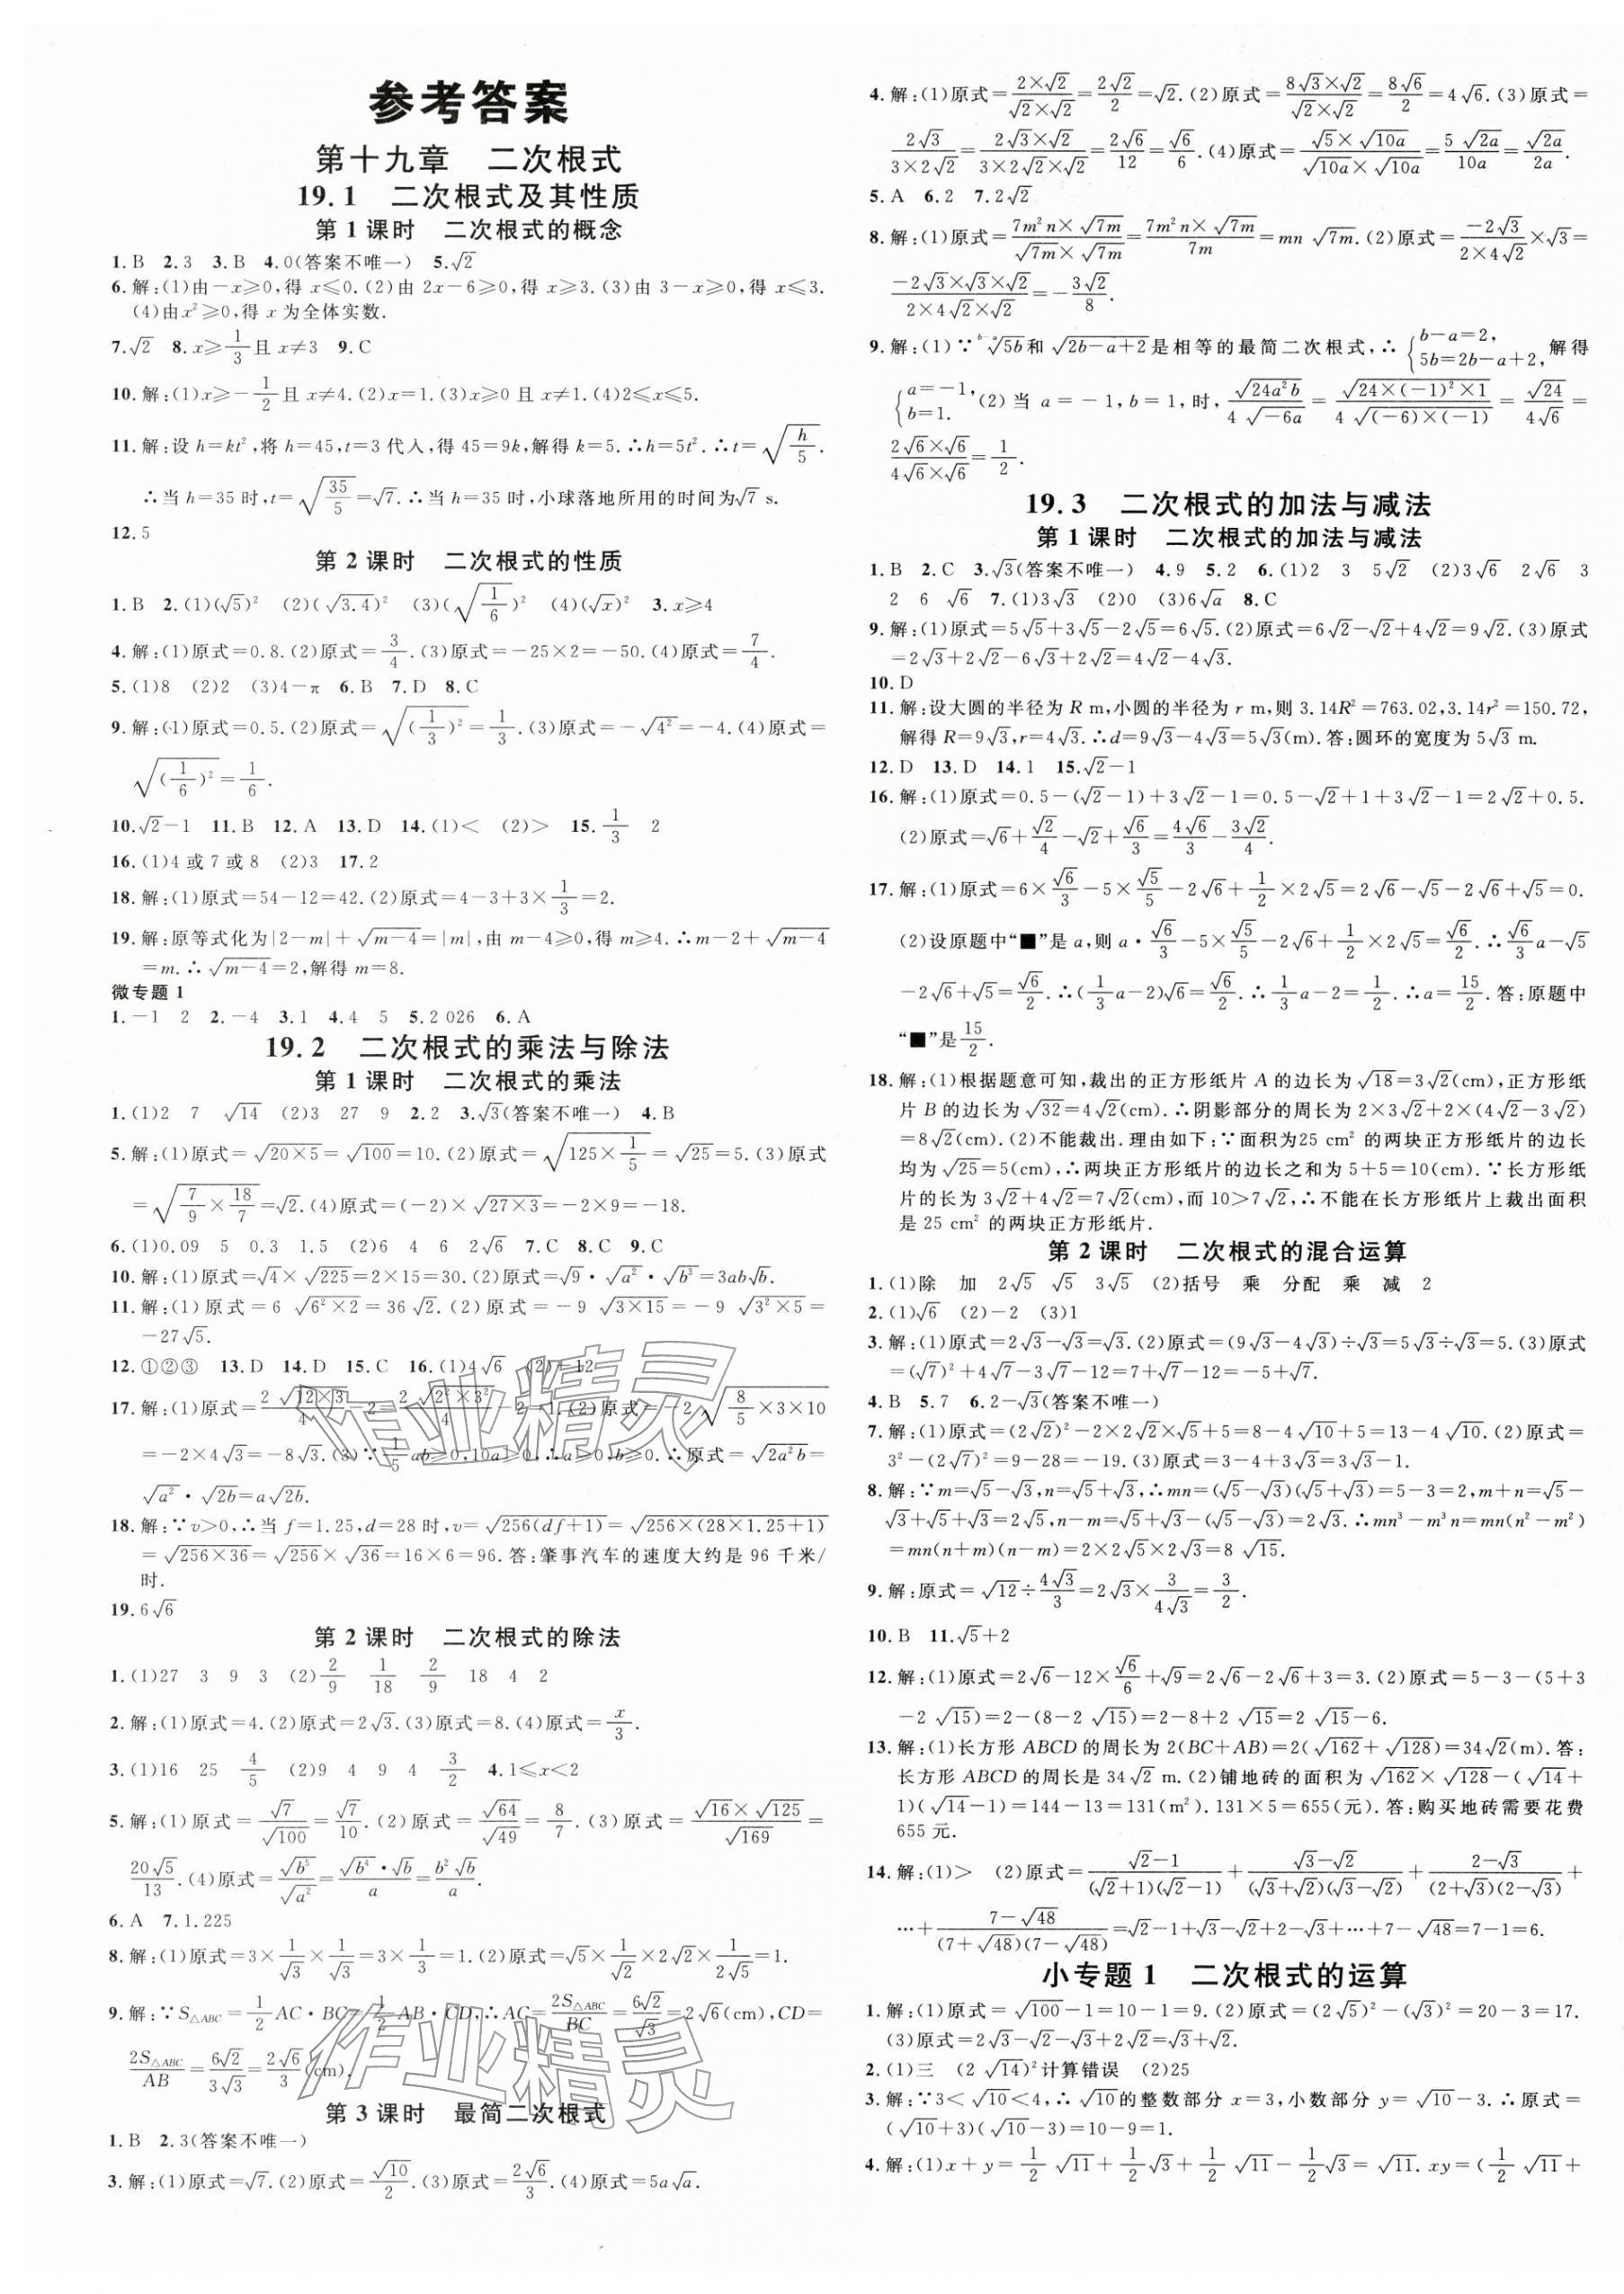 参考答案
第十九章　二次根式
19.1　二次根式及其性质
第1课时　二次根式的概念
1.B　2.3　3.B　4.0(答案不唯一)　5.√2
6.解:(1)由－x≥0,得 x≤0.(2)由 2x－6≥0,得 x≥3.(3)由 3－x≥0,得 x≤3.
(4)由x²≥0,得 x 为全体实数.
7.√2　8.x≥1/3且 x≠3　9.C
10.解:(1)x≥－1/2且 x≠4.(2)x=1.(3)x≥0 且 x≠1.(4)2≤x≤5.
11.解:设 h=kt²,将 h=45,t=3 代入,得 45=9k,解得 k=5.∴h=5t².∴t=√(h/5).
∴当 h=35 时,t=√(35/5)=√7.∴当 h=35 时,小球落地所用的时间为√7 s.
12.5
第2课时　二次根式的性质
1.B　2.(1)(√5)²　(2)(√3.4)²　(3)(√(1/6))²　(4)(√x)²　3.x≥4
4.解:(1)原式=0.8.(2)原式=3/4.(3)原式=－25×2=－50.(4)原式=7/4.
5.(1)8　(2)2　(3)4－π　6.B　7.D　8.C
9.解:(1)原式=0.5.(2)原式=√((1/3)²)=1/3.(3)原式=－√(4²)=－4.(4)原式=
√((1/6)²)=1/6.
10.√2－1　11.B　12.A　13.D　14.(1)<　(2)>　15.1/3　2
16.(1)4 或 7 或 8　(2)3　17.2
18.解:(1)原式=54－12=42.(2)原式=4－3+3×1/3=2.
19.解:原等式化为|2－m|+√(m－4)=|m|,由 m－4≥0,得 m≥4.∴m－2+√(m－4)
=m.∴√(m－4)=2,解得 m=8.
微专题 1
1.－1　2　2.－4　3.1　4.4　5　5.2 026　6.A
19.2　二次根式的乘法与除法
第1课时　二次根式的乘法
1.(1)2　7　√14　(2)3　27　9　2.2　3.√3(答案不唯一)　4.B
5.解:(1)原式=√(20×5)=√100=10.(2)原式=√(125×1/5)=√25=5.(3)原式
=√(7/9×18/7)=√2.(4)原式=(－2)×√(27×3)=－2×9=－18.
6.(1)0.09　5　0.3　1.5　(2)6　4　6　2√6　7.C　8.C　9.C
10.解:(1)原式=√4×√225=2×15=30.(2)原式=√9·√(a²)·√(b³)=3ab√b.
11.解:(1)原式=6√(6²×2)=36√2.(2)原式=－9√(3×15)=－9√(3²×5)=
－27√5.
12.①②③　13.D　14.D　15.C　16.(1)4√6　(2)－12
17.解:(1)原式=2√(12×3)/4=2√(2²×3²)/4=2×2×3/4=3.(2)原式=－2√(8/5×3×10)
=－2×4√3=－8√3.(3)∵1/5ab≥0,10a≥0,∴a≥0,b≥0.∴原式=√(2a²b)=
√(a²)·√(2b)=a√(2b).
18.解:∵v>0,∴当 f=1.25,d=28 时,v=√(256(df+1))=√(256×(28×1.25+1))
=√(256×36)=√256×√36=16×6=96.答:肇事汽车的速度大约是 96 千米/
时.
19.6√6
第2课时　二次根式的除法
1.(1)27　3　9　3　(2)2/9　1/18　2/9　18　4　2
2.解:(1)原式=4.(2)原式=2√3.(3)原式=8.(4)原式=x/3.
3.(1)16　25　4/5　(2)9　4　9　4　3/2　4.1≤x<2
5.解:(1)原式=√7/√100=√7/10.(2)原式=√64/√49=8/7.(3)原式=(√16×√125)/√169=
20√5/13.(4)原式=√(b⁵)/√(a²)=(√(b⁴)·√b)/a=b²√b/a.
6.A　7.1.225
8.解:(1)原式=3×1/√3×1/√3=3×1/3=1.(2)原式=√5×1/√2×2√2×1/(2√5)=1.
9.解:∵S△ABC=1/2AC·BC=1/2AB·CD,∴AC=2S△ABC/BC=6√2/√3=2√6(cm),CD=
2S△ABC/AB=6√2/(3√3)=2√6/3(cm).
第3课时　最简二次根式
1.B　2.3(答案不唯一)
3.解:(1)原式=√7.(2)原式=√10/2.(3)原式=2√6/3.(4)原式=5a√a.
4.解:(1)原式=(2×√2)/(√2×√2)=2√2/2=√2.(2)原式=(8√3×√2)/(√2×√2)=8√6/2=4√6.(3)原式=
2√3/(3×2√2)=(2√3×√2)/(3×2√2×√2)=2√6/12=√6/6.(4)原式=(√5×√(10a))/(√(10a)×√(10a))=5√(2a)/(10a)=√(2a)/(2a).
5.A　6.2　7.2√2
8.解:(1)原式=(7m²n×√(7m))/(√(7m)×√(7m))=(7m²n×√(7m))/(7m)=mn√(7m).(2)原式=(－2√3)/(2×4√2)×√3=
(－2√3×√3×√2)/(2×4√2×√2)=－3√2/8.
9.解:(1)∵ᵇ⁻ᵃ√(5b)和√(2b－a+2)是相等的最简二次根式,∴{b－a=2, 5b=2b－a+2,解得
{a=－1, b=1.(2)当 a=－1,b=1,时,√(24a²b)/(4√(－6a))=√(24×(－1)²×1)/(4√((－6)×(－1)))=√24/(4√6)=
(2√6×√6)/(4√6×√6)=1/2.
19.3　二次根式的加法与减法
第1课时　二次根式的加法与减法
1.B　2.C　3.√3(答案不唯一)　4.9　5.2　6.(1)2　3　5√2　(2)3√6　2√6　3
2　6　√6　7.(1)3√3　(2)0　(3)6√a　8.C
9.解:(1)原式=5√5+3√5－2√5=6√5.(2)原式=6√2－√2+4√2=9√2.(3)原式
=2√3+2√2－6√3+2√2=4√2－4√3.
10.D
11.解:设大圆的半径为 R m,小圆的半径为 r m,则 3.14R²=763.02,3.14r²=150.72,
解得 R=9√3,r=4√3.∴d=9√3－4√3=5√3(m).答:圆环的宽度为 5√3 m.
12.D　13.D　14.1　15.√2－1
16.解:(1)原式=0.5－(√2－1)+3√2－1=0.5－√2+1+3√2－1=2√2+0.5.
(2)原式=√6+√2/4－√2+√6/3=4√6/3－3√2/4.
17.解:(1)原式=6×√6/3－5×√5/5－2√6+1/2×2√5=2√6－√5－2√6+√5=0.
(2)设原题中“■”是 a,则 a·√6/3－5×√5/5－2√6+1/2×2√5=√6/2.∴√6/3a－√5
－2√6+√5=√6/2.∴(1/3a－2)√6=√6/2.∴1/3a－2=1/2.∴a=15/2.答:原题中
“■”是15/2.
18.解:(1)根据题意可知,裁出的正方形纸片 A 的边长为√18=3√2(cm),正方形纸
片 B 的边长为√32=4√2(cm).∴阴影部分的周长为 2×3√2+2×(4√2－3√2)
=8√2(cm).(2)不能裁出.理由如下:∵面积为25 cm² 的两块正方形纸片的边长
均为√25=5(cm),∴两块正方形纸片的边长之和为 5+5=10(cm).∵长方形纸
片的长为 3√2+4√2=7√2(cm),而 10>7√2,∴不能在长方形纸片上裁出面积
是 25 cm² 的两块正方形纸片.
第2课时　二次根式的混合运算
1.(1)除　加　2√5　√5　3√5　(2)括号　乘　分配　乘　减　2
2.(1)√6　(2)－2　(3)1
3.解:(1)原式=2√3－√3=√3.(2)原式=(9√3－4√3)÷√3=5√3÷√3=5.(3)原式
=(√7)²+4√7－3√7－12=7+√7－12=－5+√7.
4.B　5.7　6.2－√3(答案不唯一)
7.解:(1)原式=(2√2)²－2×2√2×√5+5=8－4√10+5=13－4√10.(2)原式=
3²－(2√7)²=9－28=－19.(3)原式=3－4+3√3=3√3－1.
8.解:∵m=√5－√3,n=√5+√3,∴mn=(√5－√3)(√5+√3)=5－3=2,m+n=√5－
√3+√5+√3=2√5,n－m=√5+√3－(√5－√3)=2√3.∴mn³－m³n=mn(n²－m²)
=mn(n+m)(n－m)=2×2√5×2√3=8√15.
9.解:原式=√12÷4√3/3=2√3×3/(4√3)=3/2.
10.B　11.√5+2
12.解:(1)原式=2√6－12×√6/6+√9=2√6－2√6+3=3.(2)原式=5－3－(5+3
－2√15)=2－(8－2√15)=2－8+2√15=2√15－6.
13.解:(1)长方形 ABCD 的周长为 2(BC+AB)=2(√162+√128)=34√2(m).答:
长方形 ABCD 的周长是 34√2 m.(2)铺地砖的面积为√162×√128－(√14+
1)(√14－1)=144－13=131(m²).131×5=655(元).答:购买地砖需要花费
655 元.
14.解:(1)>　(2)原式=(√2－1)/((√2+1)(√2－1))+(√3－√2)/((√3+√2)(√3－√2))+(2－√3)/((2+√3)(2－√3))+
…+(7－√48)/((7+√48)(7－√48))=√2－1+√3－√2+2－√3+…+7－√48=7－1=6.
小专题 1　二次根式的运算
1.解:(1)原式=√100－1=10－1=9.(2)原式=(2√5)²－(√3)²=20－3=17.
(3)原式=2√3－√2－√3+2√2=√3+√2.
2.(1)三　(2√14)²计算错误　(2)25
3.解:∵3<√10<4,∴√10的整数部分 x=3,小数部分 y=√10－3.∴原式=
(√10+3)(√10－3)=10－9=1.
4.解:(1)x+y=1/2√11+1/2√3+1/2√11－1/2√3=√11.xy=(1/2√11+
作业精灵
作业精灵